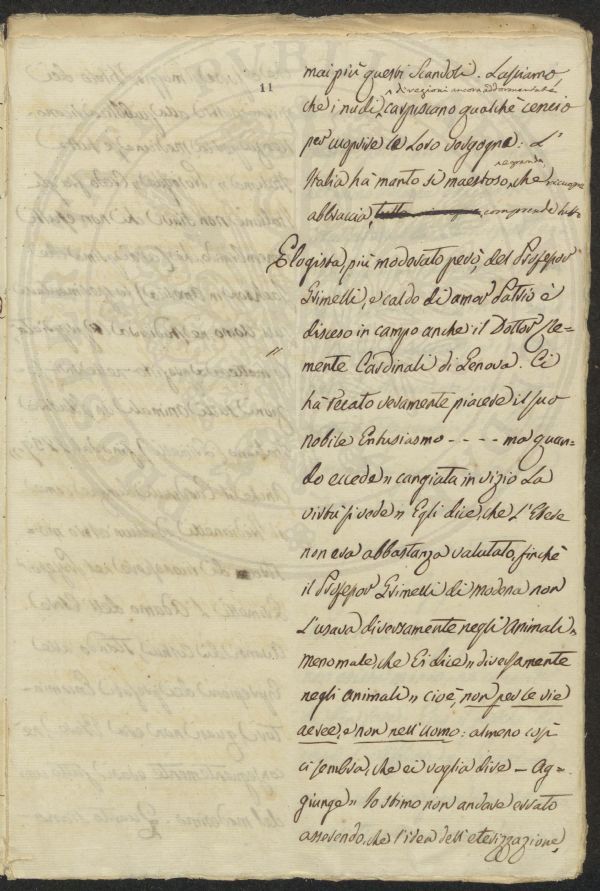 11
mai più questi Scandoli. Lasciamo,
direzioni ancora addormentate
che i nudi, carpiscano qualche cencio
per cuoprire le Loro vergogne: L'
Italia hà manto sì maestoso, che
abbraccia, comprende tutto
Elogista, più moderato però, del Professor
Grimelli, e caldo di amor Patrio è
disceso in campo anche il Dottor Cle=
mente Cardinali di Genova. Ci
hà recato veramente piacere il suo
nobile Entusiasmo - - - - - ma quan=
do eccede " cangiata in vizio La
virtù si vede " Egli dice, che L'Etere
non era abbastanza valutato, finchè
il Professor Grimelli di modena non
L'usava diversamente negli animali "
menomale, che Ei dice " diversamente
negli animali " cioè, non per le vie
aeree, e non nell'Uomo: almeno così
ci sembra, che ei voglia dire – Ag=
giunge " Io stimo non andare errato
asserendo, che l'idea dell'eterizzazione,